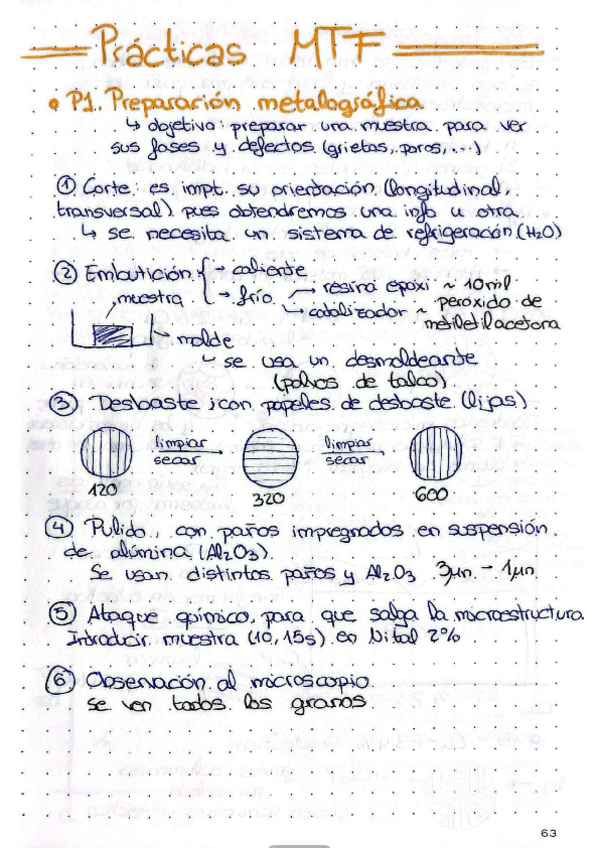 Prácticas MTF
• P1. Preparación metalográfica
↳ objetivo: preparar una muestra para ver
sus fases y defectos (grietas, poros, ...)
① Corte: es impt. su orientación (longitudinal,
transversal) pues obtendremos una info u otra
↳ se necesita un sistema de refrigeración (H₂O)
② Embutición { → caliente
→ frío → resina epoxi ~ 10ml
↳ catalizador ~ peróxido de
metiletilacetona
muestra
→ molde
↳ se usa un desmoldeante
(polvos de talco)
③ Desbaste: con papeles de desbaste (lijas)
limpiar limpiar
secar secar
120 320 600
④ Pulido, con paños impregnados en suspensión
de alúmina (Al₂O₃).
Se usan distintos paños y Al₂O₃ 3μn - 1μn
⑤ Ataque químico, para que salga la microestructura
Introducir muestra (10, 15s) en Nital 2%
⑥ Observación al microscopio.
se ven todos los granos.
63